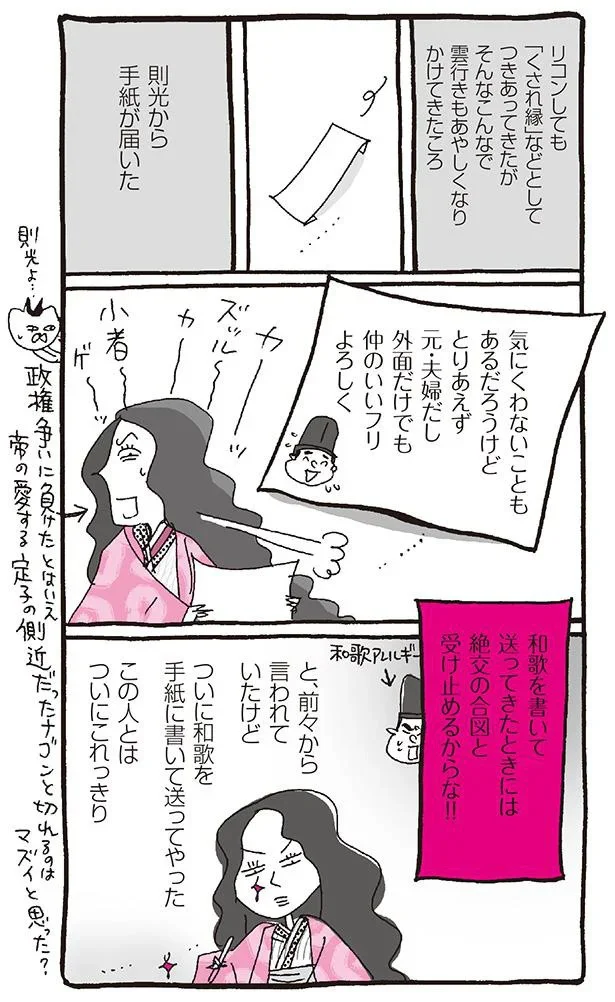 リコンしても
「くされ縁」などとして
つきあってきたが
そんなこんなで
雲行きもあやしくなり
かけてきたころ
則光から
手紙が届いた
気にくわないことも
あるだろうけど
とりあえず
元・夫婦だし
外面だけでも
仲のいいフリ
よろしく
カー
ズッルー
カー
小者～
ゲー
則光よ…
政権争いに負けたとはいえ
帝の愛する定子の側近だったナゴンと切れるのは
マズイと思った？
和歌を書いて
送ってきたときには
絶交の合図と
受け止めるからな!!
和歌アレルギー
と、前々から
言われて
いたけど
ついに和歌を
手紙に書いて送ってやった
この人とは
ついにこれっきり